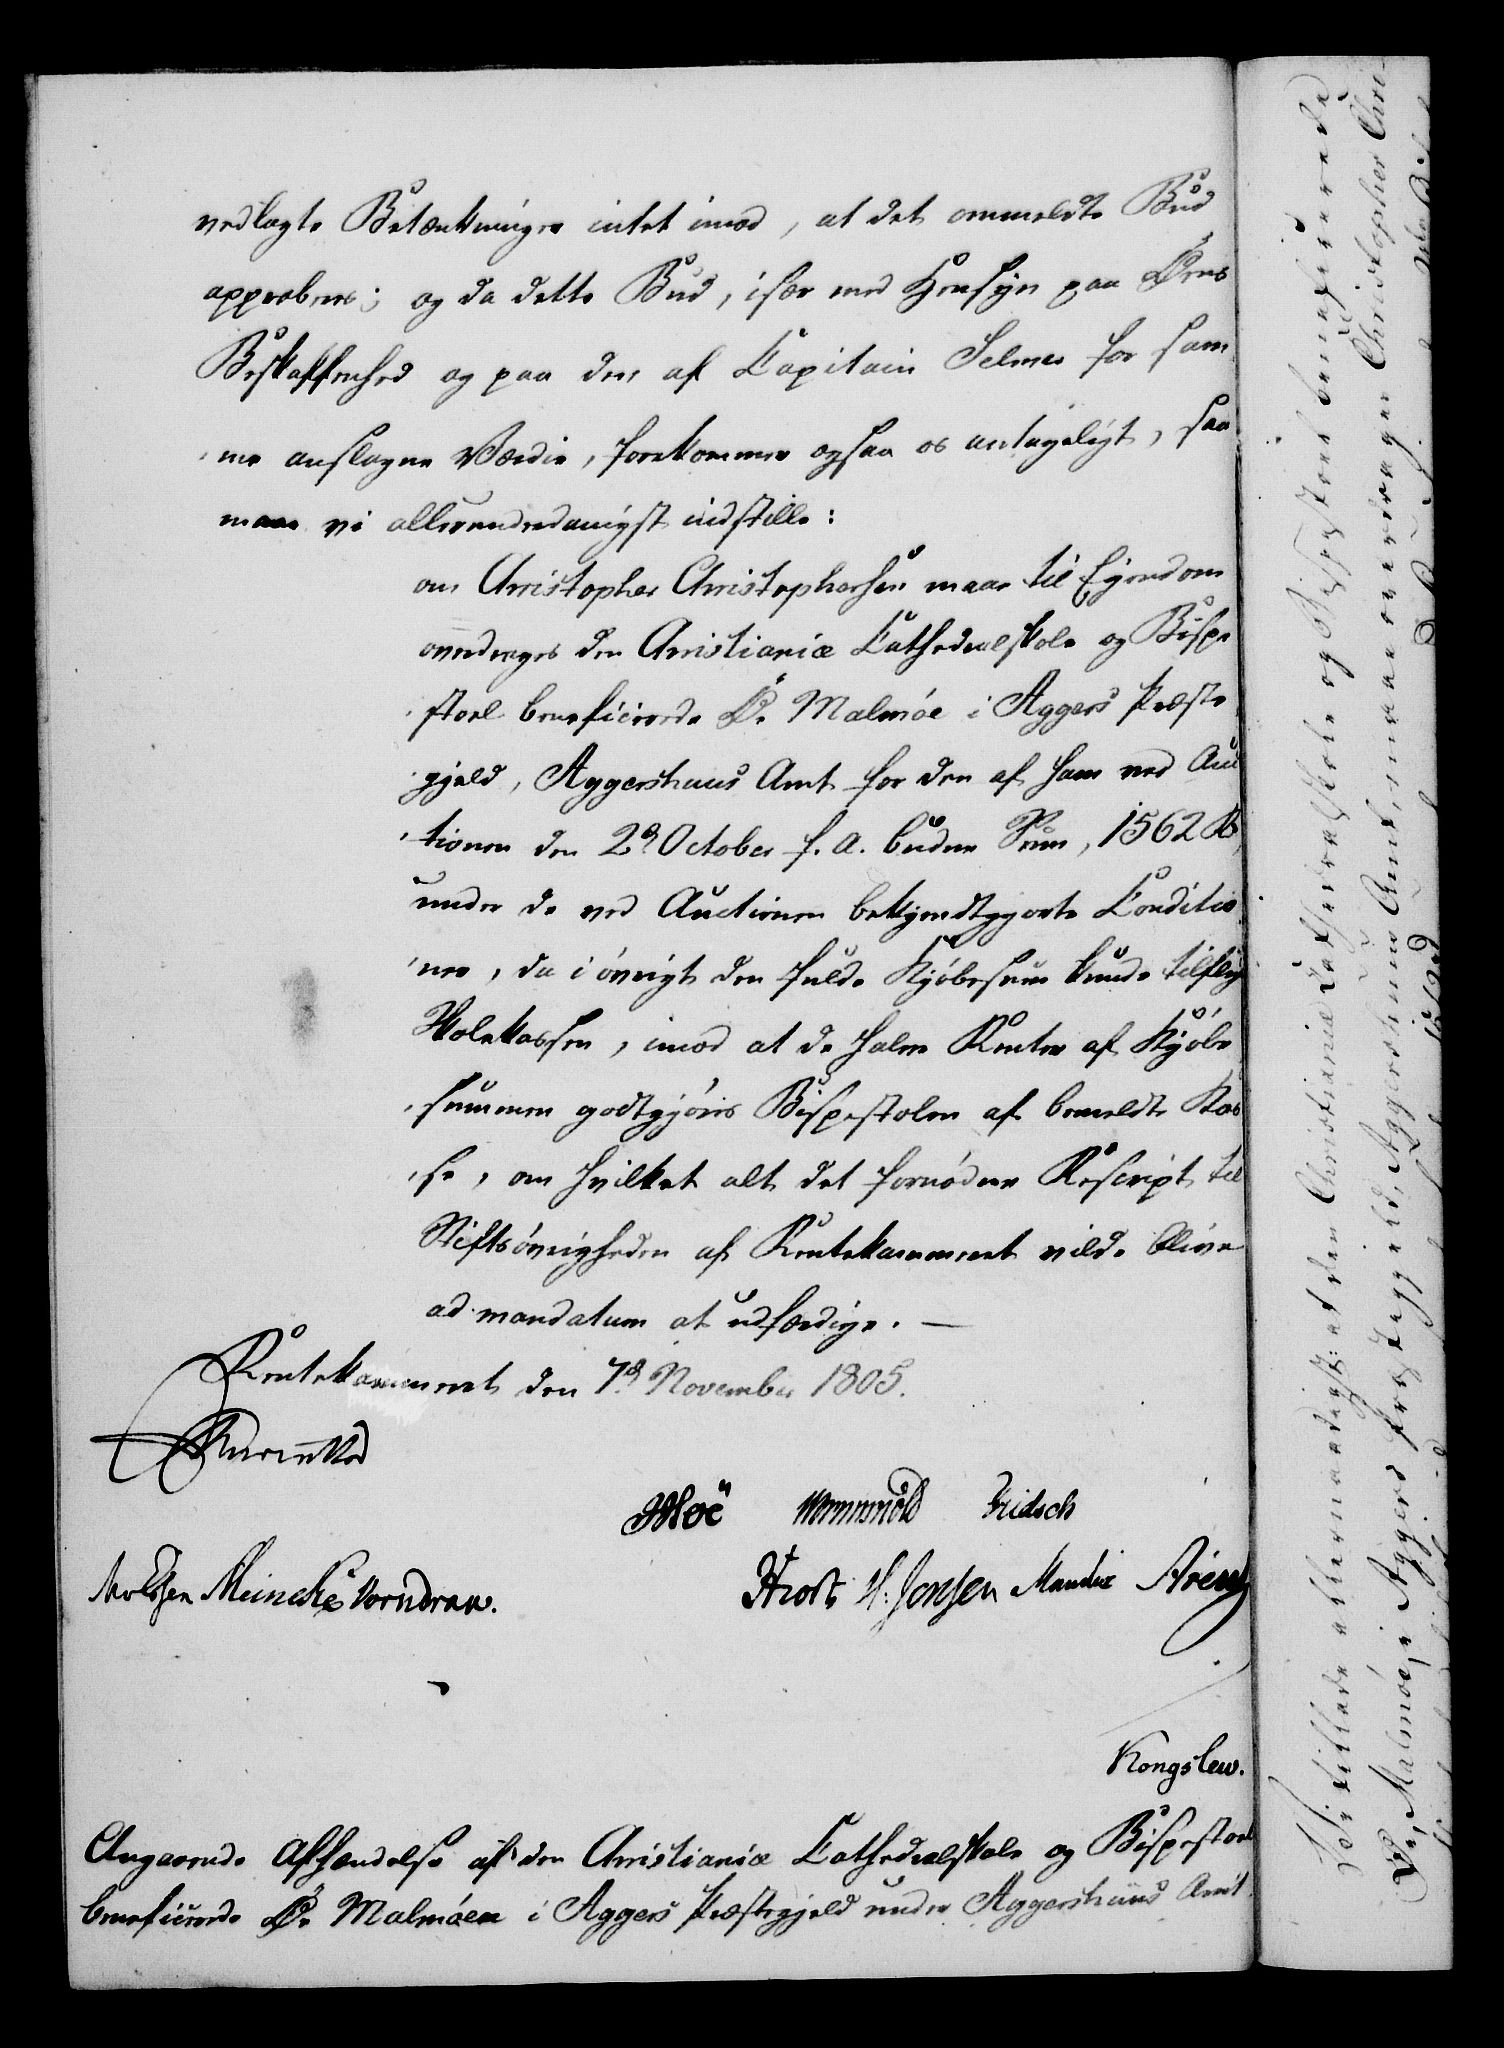 vedlagte Betænkninger intet imod, at det ommeldte Bud
approberes; og da dette Bud, især med Hensyn paa Øens
Beskaffenhed og paa den af Capitain Selmer for sam
me anslagne Værdie, forekommer ogsaa os antageligt, saa
maae vi allerunderdanigst indstille:
om Christopher Christophersen maae til Eyendom
overdrages den Christianiæ Cathedralskole og Bispe
stoel beneficerede Øe Malmöe i Aggers Præste
gjeld, Aggershuus Amt for den af ham ved Auc
tionen den 2d October f. A. budne Sum, 1562 Rd
under de ved Auctionen bekjendtgjorte Conditio
ner, da i övrigt den fulde Kjöbesum kunde tilflyde
Skolekassen, imod at de halve Renter af Kjöbe
summen godtgjöres Bispestolen af bemeldte Kas
se, om hvilket alt det fornödne Rescript til
Stiftsövrigheden af Rentekammeret vilde blive
ad mandatum at udfærdige. —
Rentekammeret den 7d November 1805.
Reventlow
Moë Wormskiold Fridsch
Meincke Vorndran.
Hrost H. Jensen Mandix Arentz
Kongslew.
Angaaende Afhændelse af den Christianiæ Cathedralskole og Bispestoel
beneficerede Øe Malmöen i Aggers Præstegjeld under Aggershuus Amt.
indstilles allernaadigst: at den Christianiæ Cathedralskole og Bispestoel beneficerede
Øe, Malmöe, i Aggers Præstegjeld, Aggershuus Amt, maae overdrages Christopher Chri-